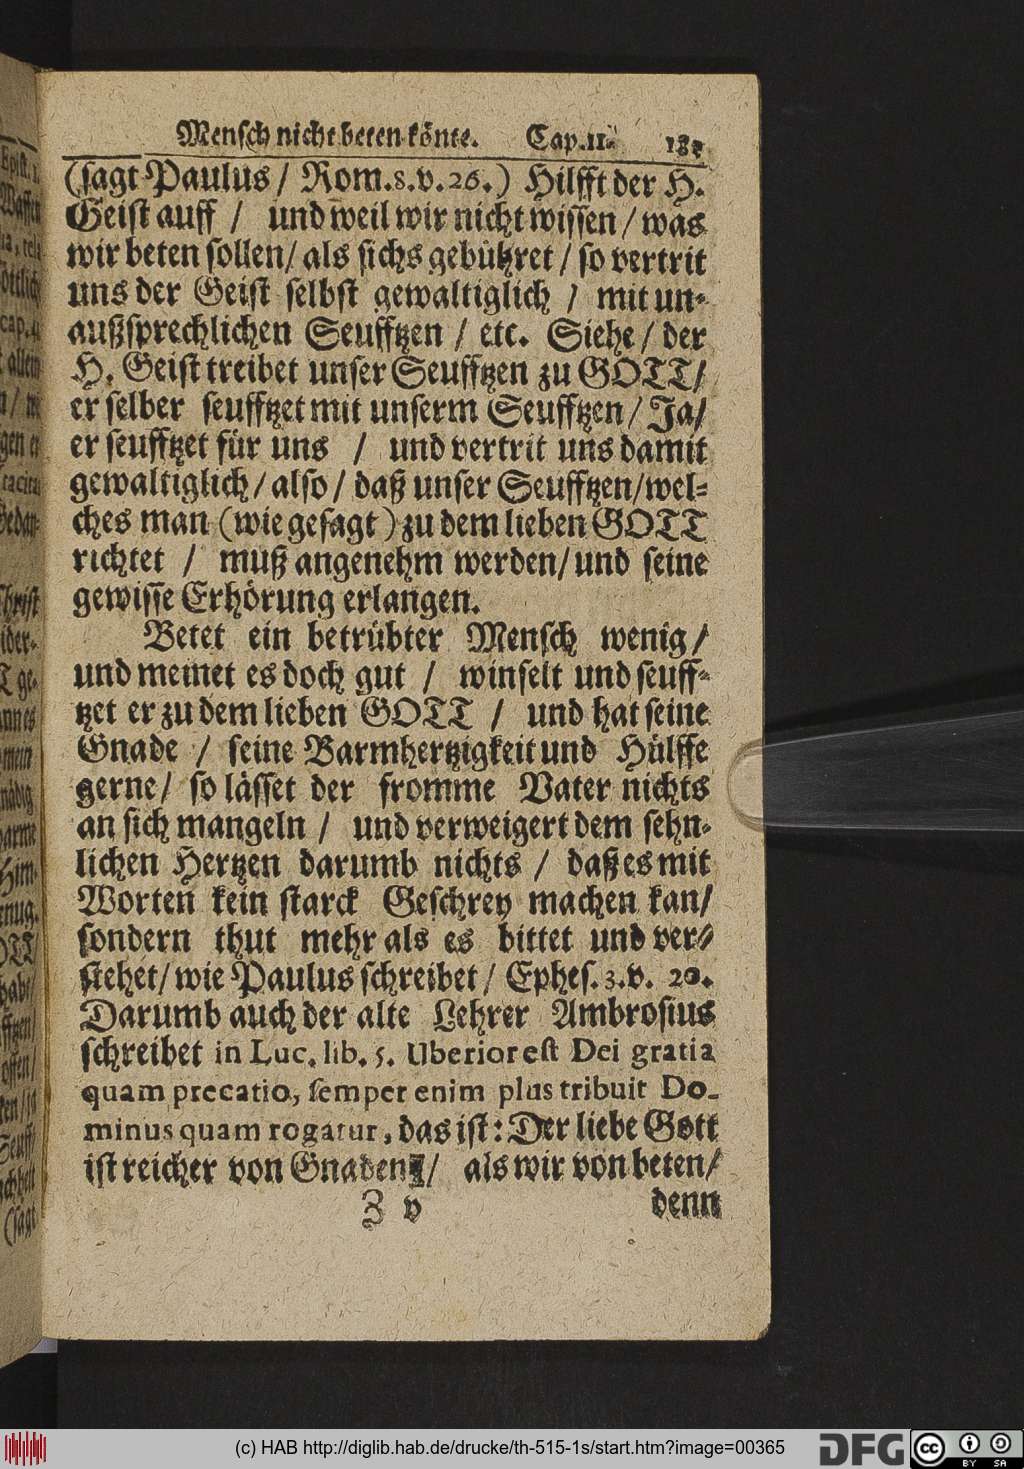 Mensch nicht beten könte. Cap. 11.
(sagt Paulus / Rom. 8. v. 26.) Hilfft der H.
Geist auff / und weil wir nicht wissen / was
wir beten sollen / als sichs gebühret / so vertrit
uns der Geist selbst gewaltiglich / mit un-
außsprechlichen Seufftzen / etc. Siehe / der
H. Geist treibet unser Seufftzen zu GOTT /
er selber seufftzet mit unserm Seufftzen / Ja /
er seufftzet für uns / und vertrit uns damit
gewaltiglich / also / daß unser Seufftzen / wel-
ches man (wie gesagt) zu dem lieben GOTT
richtet / muß angenehm werden / und seine
gewisse Erhörung erlangen.
Betet ein betrübter Mensch wenig /
und meinet es doch gut / winselt und seuff-
tzet er zu dem lieben GOTT / und hat seine
Gnade / seine Barmhertzigkeit und Hülffe
gerne / so lässet der fromme Vater nichts
an sich mangeln / und verweigert dem sehn-
lichen Hertzen darumb nichts / daß es mit
Worten kein starck Geschrey machen kan /
sondern thut mehr als es bittet und ver-
stehet / wie Paulus schreibet / Ephes. 3. v. 20.
Darumb auch der alte Lehrer Ambrosius
schreibet in Luc. lib. 5. Uberior est Dei gratia
quam precatio, semper enim plus tribuit Do-
minus quam rogatur, das ist: Der liebe Gott
ist reicher von Gnaden / als wir von beten /
Z v denn
(c) HAB http://diglib.hab.de/drucke/th-515-1s/start.htm?image=00365 DFG CC BY SA